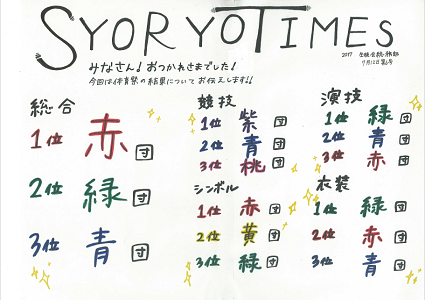 SYORYO TIMES
みなさん!おつかれさまでした!
今回は体育祭の結果についてお伝えします!!
2017
7月12日
総合
1位 赤団
2位 緑団
3位 青団
競技
1位 紫団
2位 青団
3位 桃団
シンボル
1位 赤団
2位 黄団
3位 緑団
演技
1位 緑団
2位 青団
3位 赤団
衣装
1位 緑団
2位 赤団
3位 青団